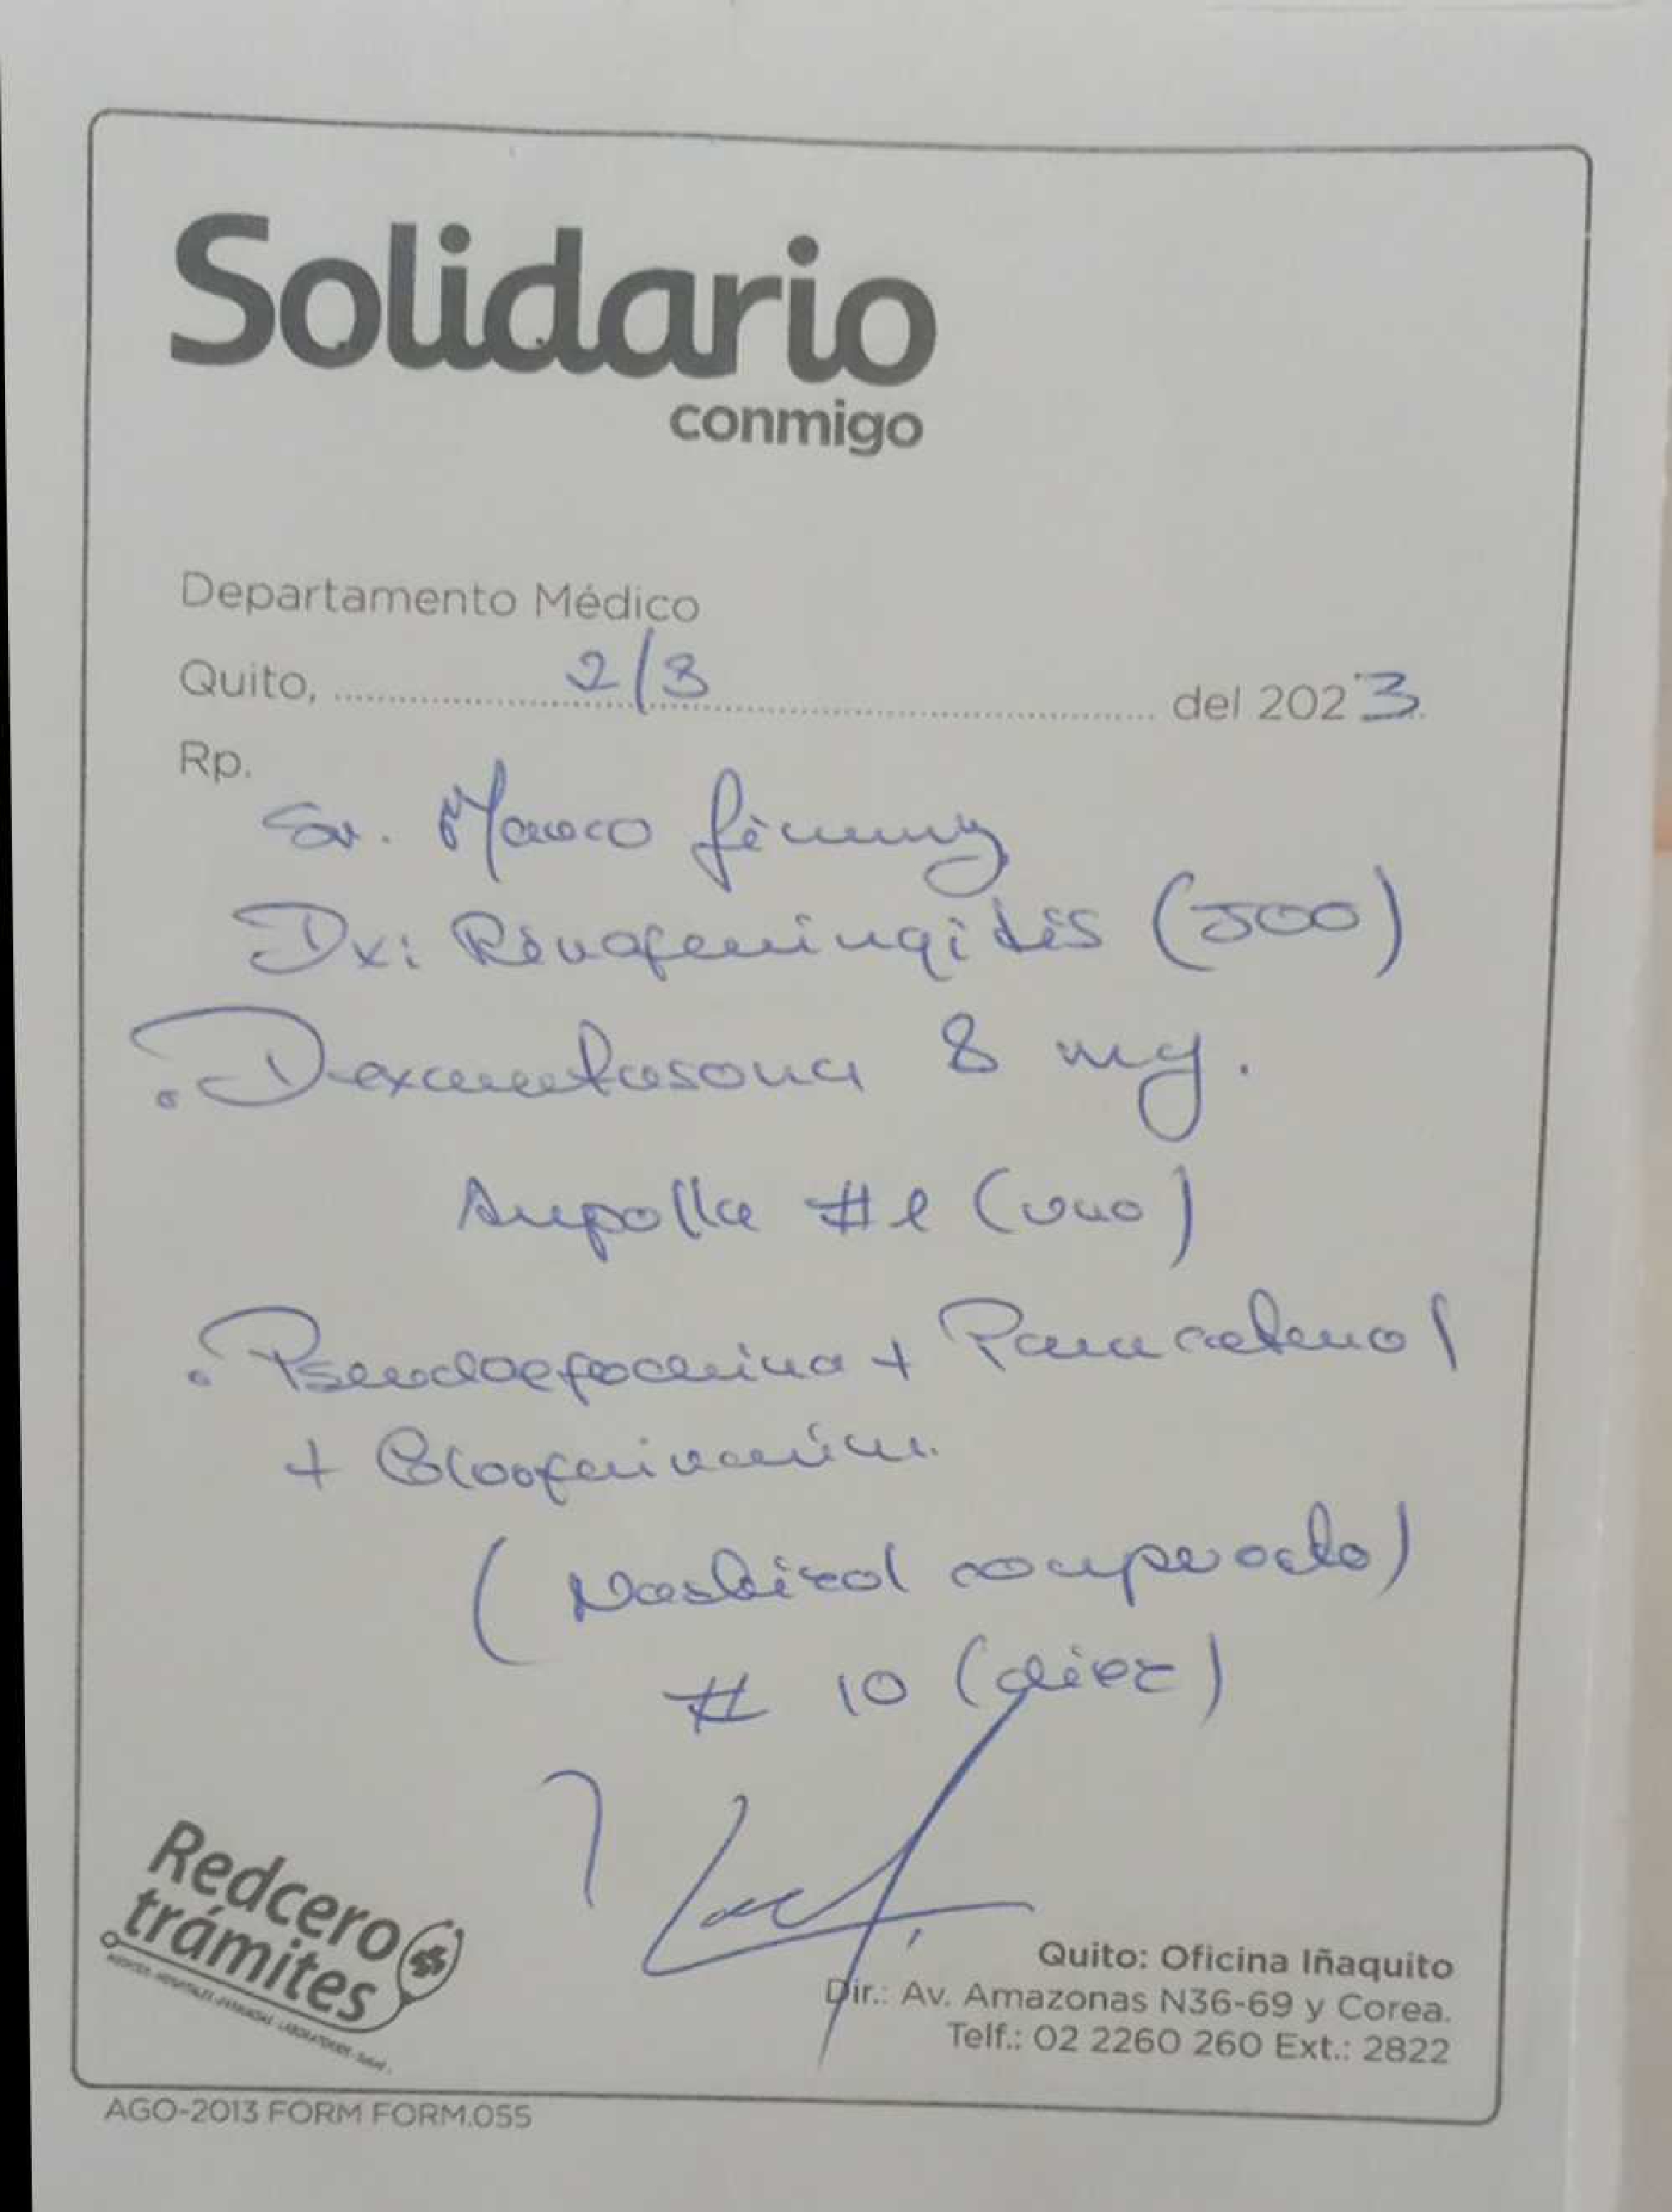 Solidario
conmigo
Departamento Médico
Quito, 2/3 del 2023
Rp.
Sr. Marco
Dx: Rinofaringitis (J00)
. Dexametasona 8 mg.
Ampolla #1 (uno)
. Pseudoefedrina + Paracetamol
+ Clorfeniramina
(Nastizol compuesto)
# 10 (diez)
Redcero
trámites
Quito: Oficina Iñaquito
Dir.: Av. Amazonas N36-69 y Corea.
Telf.: 02 2260 260 Ext.: 2822
AGO-2013 FORM FORM.055